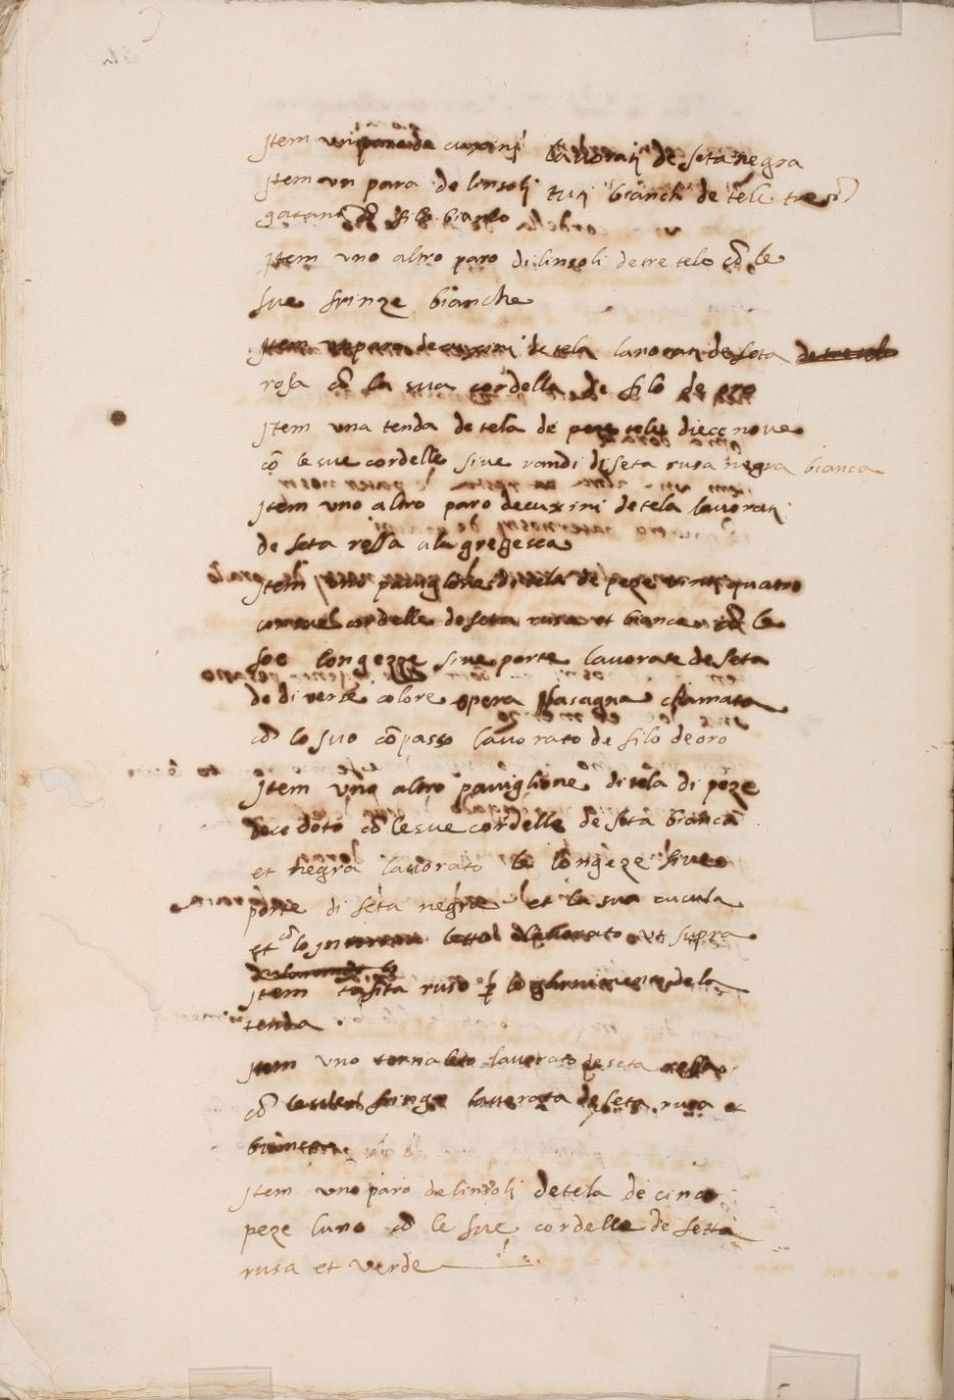 Item un paro de cuxini lavorati de seta negra
Item un para de linsoli tuti bianchi de tele tre
bianco
Item uno altro paro di linsoli de tre tele cō le
sue frinze bianche
Item un paro de cuxini de tela lavorati de seta
rosa cō la sua cordella de filo de oro
Item una tenda de tela de peze diece nove
cō le sue cordelle sive randi di seta rusa negra bianca
Item uno altro paro de cuxini de tela lavorati
de seta rossa a la gregesca
Item uno paviglione di tela de peze vinti quatro
cordelle de seta rusa et bianca cō le
soe longezze sive porte lavorate de seta
de diverse colore opera chiamata
cō lo suo cōpasso lavorato de filo de oro
Item uno altro paviglione di tela di peze
dece doto cō le sue cordelle de seta bianca
et negra lavorato le longeze sive
porte di seta negra et la sua cucula
et lo lavorato ut supra
Item ruso de la
tenda
Item uno tornaleto lavorato de seta rossa
cō frinze de seta rusa et
bianca
Item uno paro de linsoli de tela de cinco
peze luno cō le sue cordelle de setta
rusa et verde